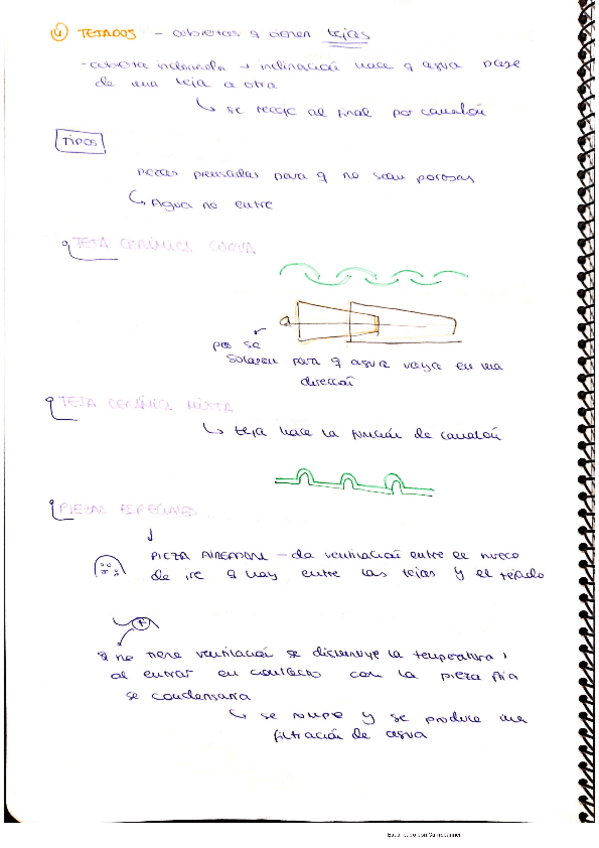 4 TEJADOS - cubiertas q tienen tejas
- cubierta inclinada → inclinación hace q agua pase
de una teja a otra
↳ se recoge al final por canalón
TIPOS
piezas prensadas para q no sean porosas
↳ Agua no entre
TEJA CERÁMICA CURVA
se
solapen para q agua vaya en una
dirección
TEJA CERÁMICA MIXTA
↳ teja hace la función de canalón
PIEZAS ESPECIALES
PIEZA AIREADORA - da ventilación entre el hueco
de q hay entre las tejas y el tejado
q no tiene ventilación se disminuye la temperatura,
al entrar en contacto con la pieza fría
se condensaría
↳ se rompe y se produce una
filtración de agua